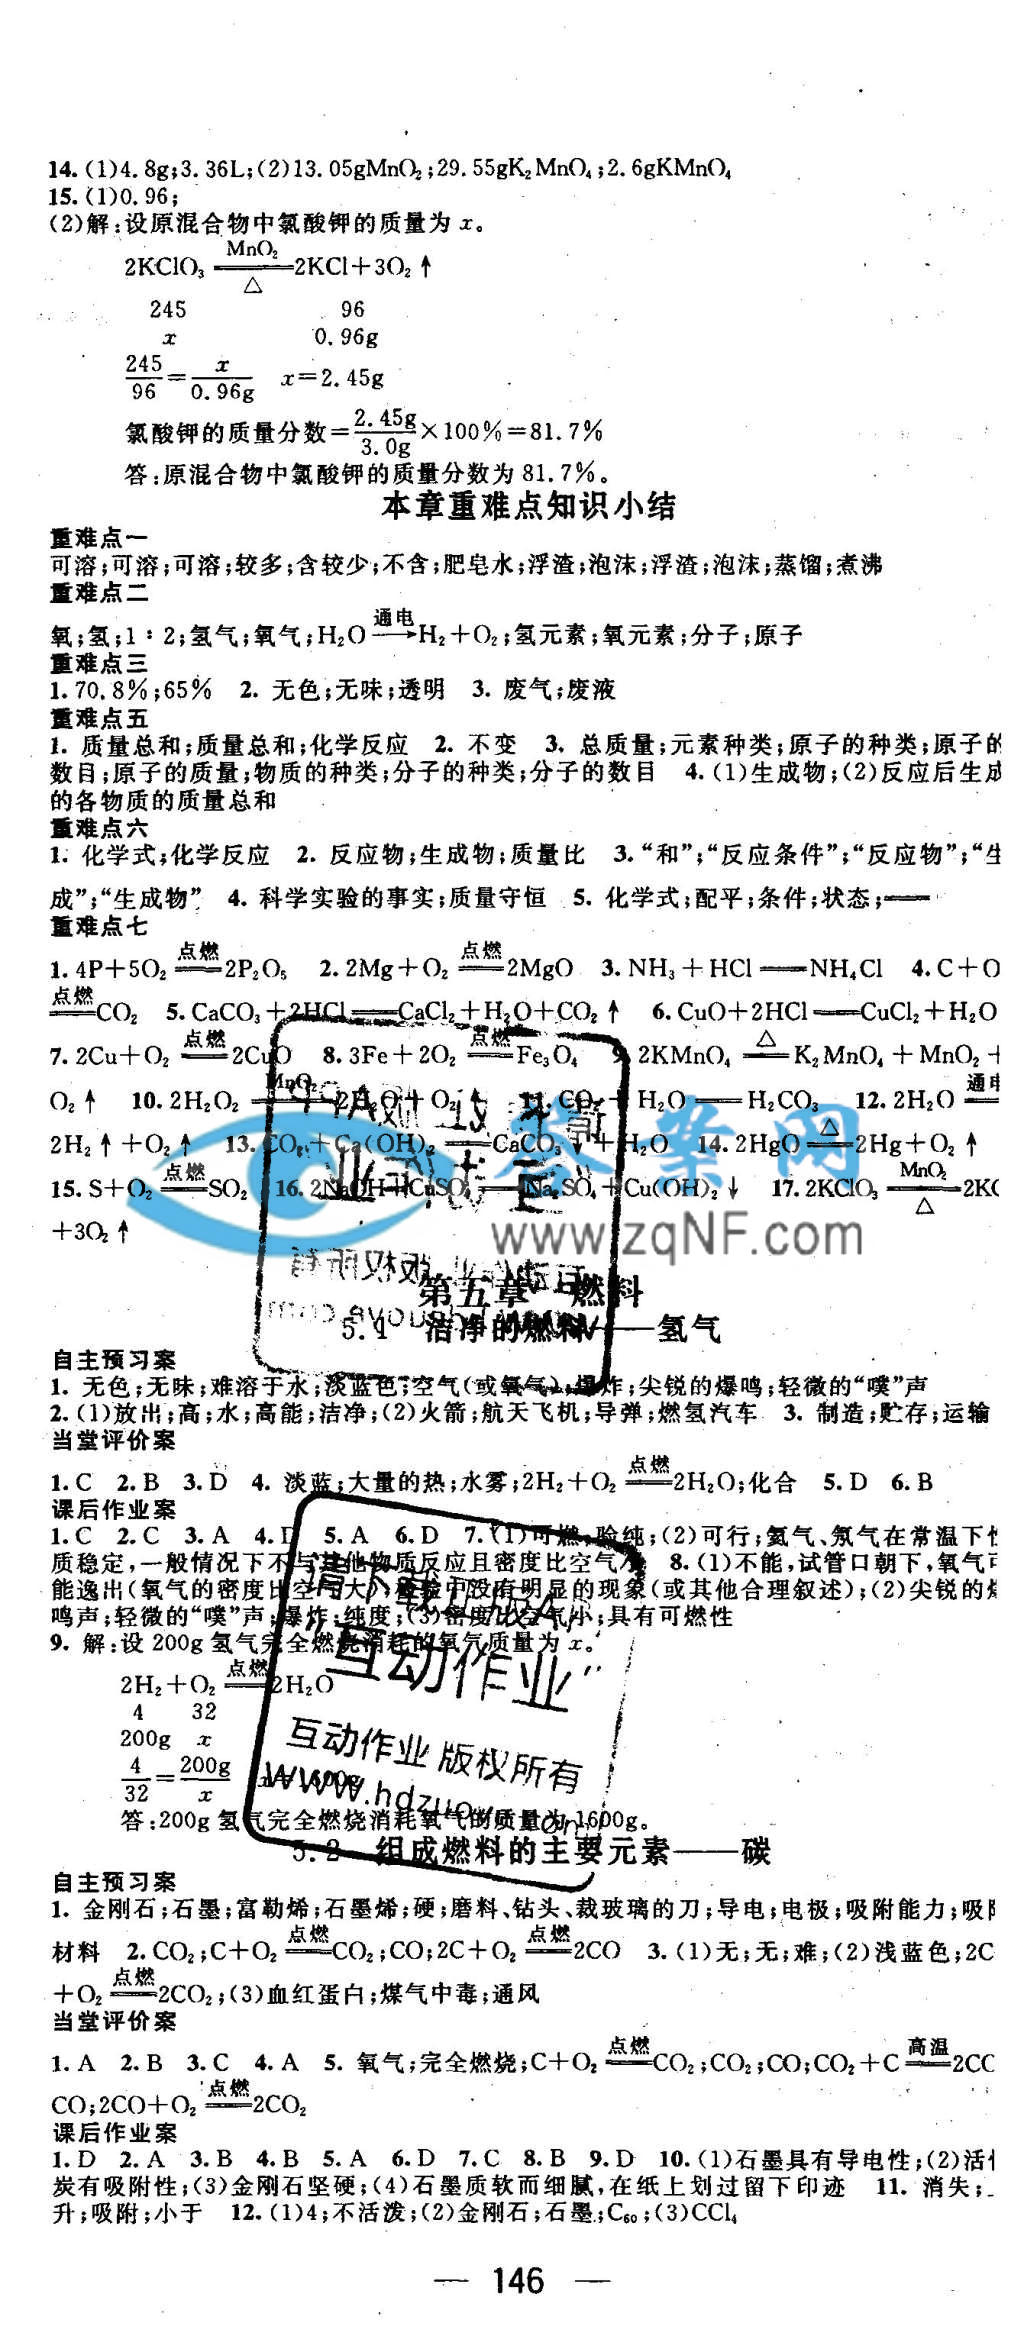 14. (1)4.8g;3.36L;(2)13.05gMnO₂;29.55gK₂MnO₄;2.6gKMnO₄
15. (1)0.96;
(2)解:设原混合物中氯酸钾的质量为 x。
MnO₂
2KClO₃══2KCl+3O₂↑
△
245 96
x 0.96g
245/96=x/0.96g x=2.45g
氯酸钾的质量分数=2.45g/3.0g×100%=81.7%
答:原混合物中氯酸钾的质量分数为 81.7%。
本章重难点知识小结
重难点一
可溶;可溶;可溶;较多;含较少;不含;肥皂水;浮渣;泡沫;浮渣;泡沫;蒸馏;煮沸
重难点二
氧;氢;1∶2;氢气;氧气;H₂O 通电→H₂+O₂;氢元素;氧元素;分子;原子
重难点三
1. 70.8%;65% 2. 无色;无味;透明 3. 废气;废液
重难点五
1. 质量总和;质量总和;化学反应 2. 不变 3. 总质量;元素种类;原子的种类;原子的
数目;原子的质量;物质的种类;分子的种类;分子的数目 4. (1)生成物;(2)反应后生成
的各物质的质量总和
重难点六
1. 化学式;化学反应 2. 反应物;生成物;质量比 3. “和”;“反应条件”;“反应物”;“生
成”;“生成物” 4. 科学实验的事实;质量守恒 5. 化学式;配平;条件;状态;══
重难点七
1. 4P+5O₂ 点燃══2P₂O₅ 2. 2Mg+O₂ 点燃══2MgO 3. NH₃+HCl══NH₄Cl 4. C+O
点燃══CO₂ 5. CaCO₃+2HCl══CaCl₂+H₂O+CO₂↑ 6. CuO+2HCl══CuCl₂+H₂O
7. 2Cu+O₂ 点燃══2CuO 8. 3Fe+2O₂ 点燃══Fe₃O₄ 9. 2KMnO₄ △══K₂MnO₄+MnO₂+
O₂↑ 10. 2H₂O₂ MnO₂══2H₂O+O₂↑ 11. CO₂+H₂O══H₂CO₃ 12. 2H₂O 通电══
2H₂↑+O₂↑ 13. CO₂+Ca(OH)₂══CaCO₃↓+H₂O 14. 2HgO △══2Hg+O₂↑
15. S+O₂ 点燃══SO₂ 16. 2NaOH+CuSO₄══Na₂SO₄+Cu(OH)₂↓ 17. 2KClO₃ MnO₂══△ 2KC
+3O₂↑
答案网
www.zqNF.com
第五章 燃料
5.1 洁净的燃料——氢气
自主预习案
1. 无色;无味;难溶于水;淡蓝色;空气(或氧气);爆炸;尖锐的爆鸣;轻微的“噗”声
2. (1)放出;高;水;高能;洁净;(2)火箭;航天飞机;导弹;燃氢汽车 3. 制造;贮存;运输
当堂评价案
1. C 2. B 3. D 4. 淡蓝;大量的热;水雾;2H₂+O₂ 点燃══2H₂O;化合 5. D 6. B
课后作业案
1. C 2. C 3. A 4. D 5. A 6. D 7. (1)可燃;验纯;(2)可行;氦气、氖气在常温下性
质稳定,一般情况下不与其他物质反应且密度比空气小 8. (1)不能,试管口朝下,氧气可
能逸出(氧气的密度比空气大),检验中没有明显的现象(或其他合理叙述);(2)尖锐的爆
鸣声;轻微的“噗”声;爆炸;纯度;(3)密度比空气小;具有可燃性
9. 解:设 200g 氢气完全燃烧消耗的氧气质量为 x。
2H₂+O₂ 点燃══2H₂O
4 32
200g x
4/32=200g/x x=1600g
答:200g 氢气完全燃烧消耗氧气的质量为 1600g。
请下载
“互动作业”
互动作业 版权所有
www.hdzuoye.com
5.2 组成燃料的主要元素——碳
自主预习案
1. 金刚石;石墨;富勒烯;石墨烯;硬;磨料、钻头、裁玻璃的刀;导电;电极;吸附能力;吸附
材料 2. CO₂;C+O₂ 点燃══CO₂;CO;2C+O₂ 点燃══2CO 3. (1)无;无;难;(2)浅蓝色;2C
+O₂ 点燃══2CO₂;(3)血红蛋白;煤气中毒;通风
当堂评价案
1. A 2. B 3. C 4. A 5. 氧气;完全燃烧;C+O₂ 点燃══CO₂;CO₂;CO;CO₂+C 高温══2CO
CO;2CO+O₂ 点燃══2CO₂
课后作业案
1. D 2. A 3. B 4. B 5. A 6. D 7. C 8. B 9. D 10. (1)石墨具有导电性;(2)活性
炭有吸附性;(3)金刚石坚硬;(4)石墨质软而细腻,在纸上划过留下印迹 11. 消失;
升;吸附;小于 12. (1)4;不活泼;(2)金刚石;石墨;C₆₀;(3)CCl₄
— 146 —